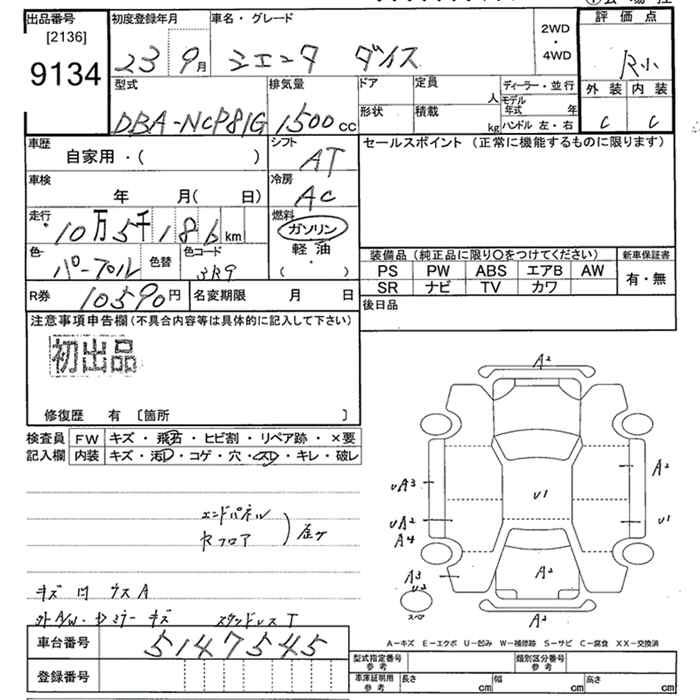 出品番号
[2136]
9134
初度登録年月
23 9月
車名・グレード
シエンタ ダイス
2WD
・
4WD
評価点
R小
外装 内装
C C
型式
DBA-NCP81G
排気量
1500cc
ドア
形状
定員
人
積載
kg
ディーラー・並行
モデル年式 年
ハンドル 左・右
車歴
自家用・( )
シフト
AT
車検
年 月( 日)
冷房
AC
走行
10万5千186km
燃料
ガソリン
・
軽油
( ・ )
色
パープル
色替
色コード
3R9
R券 10590円
名変期限 月 日
セールスポイント (正常に機能するものに限ります)
装備品 (純正品に限り〇をつけてください)
PS PW ABS エアB AW
SR ナビ TV カワ
新車保証書
有・無
後日品
注意事項申告欄(不具合内容等は具体的に記入して下さい)
初出品
修復歴 有 〔箇所 〕
検査員記入欄
FW キズ・飛石・ヒビ割・リペア跡・×要
内装 キズ・汚レ・コゲ・穴・スレ・キレ・破レ
エンドパネル
フロア
キズ 凹 ウスA
外A/W・ドミラーキズ スタッドレスT
A²
A²
UA³
U1
UA²
U1
A4
A3
U2
A²
スペア
A²
A-キズ E-エクボ U-凹み W-補修跡 S-サビ C-腐食 XX-交換済
車台番号 5147545
登録番号
型式指定番号 参考
類別区分番号 参考
車庫証明用 参考
長さ cm
幅 cm
高さ cm